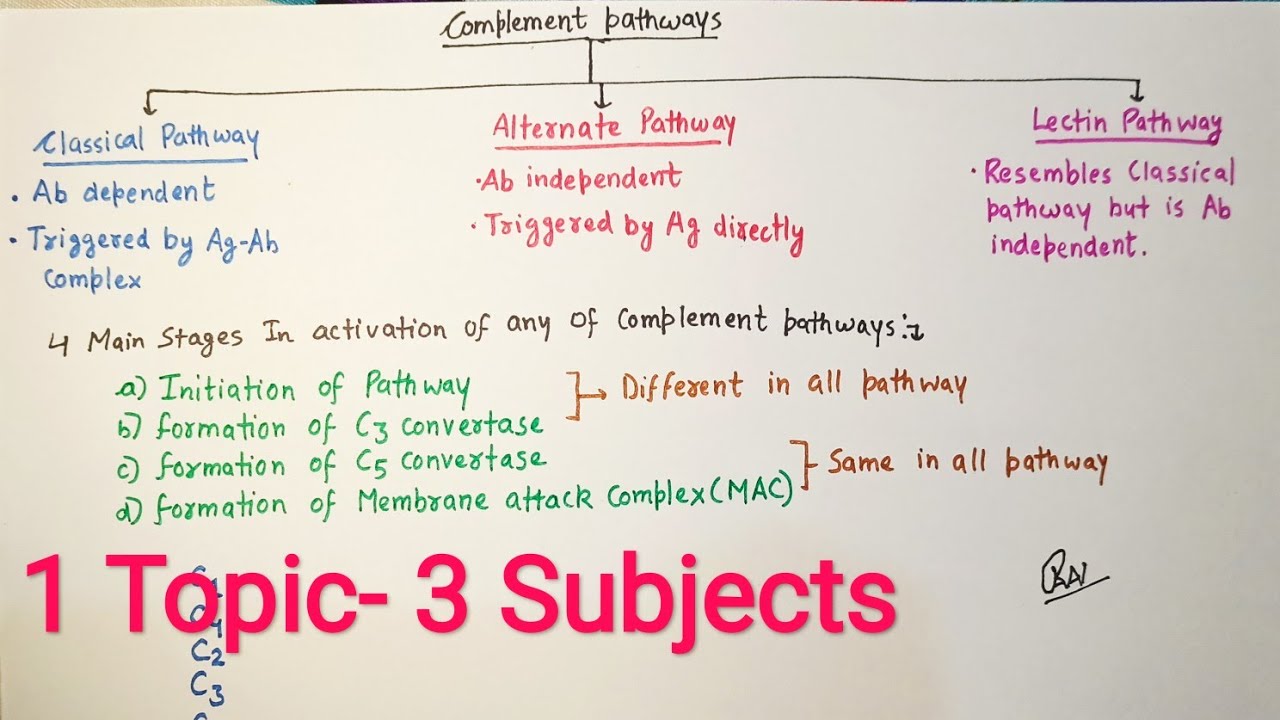 Complement pathways
Classical Pathway
• Ab dependent
• Triggered by Ag-Ab
Complex
Alternate Pathway
• Ab independent
• Triggered by Ag directly
Lectin Pathway
• Resembles Classical
pathway but is Ab
independent.
4 Main Stages In activation of any of Complement pathways:↴
a) Initiation of Pathway
b) formation of C3 convertase
→ Different in all pathway
c) formation of C5 convertase
d) formation of Membrane attack Complex (MAC)
Same in all pathway
1 Topic- 3 Subjects
C4
C2
C3